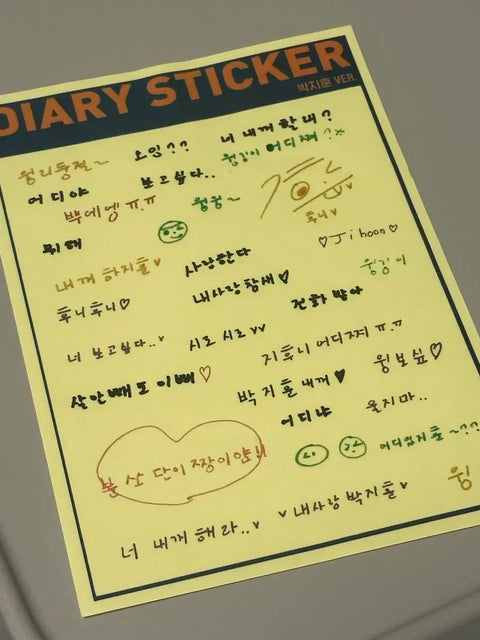 DIARY STICKER
박지훈 VER.
윙디둥절~
소잉??
너 내꺼 할래?
윙깅이 어디쪄?
어디야
보고싶다..
빽에엥ㅠ.ㅠ
윙윙~
후니
뭐해
♡Jihoon♡
내꺼 하지훈
사랑한다
윙깅이
후니후니♡
내사랑참새♡
전화 받아
너 보고싶다..
시로 시로
지후니 어디찌ㅠ.ㅠ
윙보싶♡
살안빼도이뻐♡
박지훈내꺼♥
어디냐
울지마..
분산단이짱이얌!!
어디있지훈~??
너 내꺼해라..
내사랑박지훈
윙